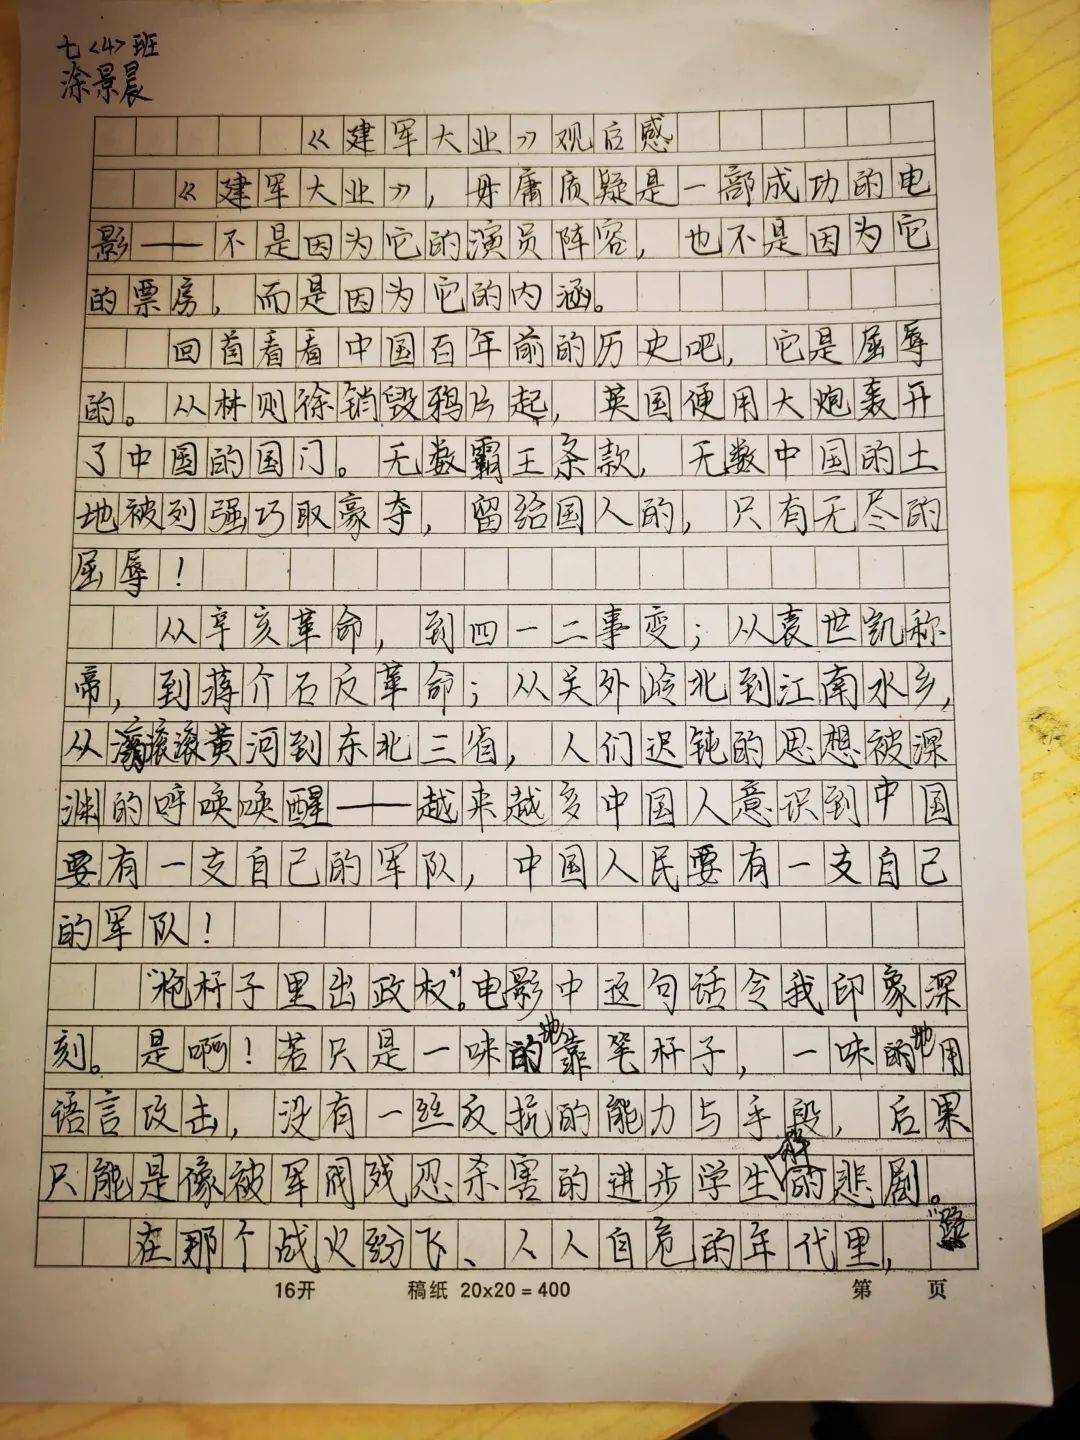 七<4>班
涂景晨
《建军大业》观后感
《建军大业》，毋庸质疑是一部成功的电
影——不是因为它的演员阵容，也不是因为它
的票房，而是因为它的内涵。
回首看看中国百年前的历史吧，它是屈辱
的。从林则徐销毁鸦片起，英国便用大炮轰开
了中国的国门。无数霸王条款，无数中国的土
地被列强巧取豪夺，留给国人的，只有无尽的
屈辱！
从辛亥革命，到四一二事变；从袁世凯称
帝，到蒋介石反革命；从关外岭北到江南水乡，
从滚滚黄河到东北三省，人们迟钝的思想被深
渊的呼唤唤醒——越来越多中国人意识到中国
要有一支自己的军队，中国人民要有一支自己
的军队！
“枪杆子里出政权”。电影中这句话令我印象深
刻。是啊！若只是一味地靠笔杆子，一味地用
语言攻击，没有一丝反抗的能力与手段，后果
只能是像被军阀残忍杀害的进步学生样的悲剧。
在那个战火纷飞、人人自危的年代里，
16开 稿纸 20x20=400 第 页